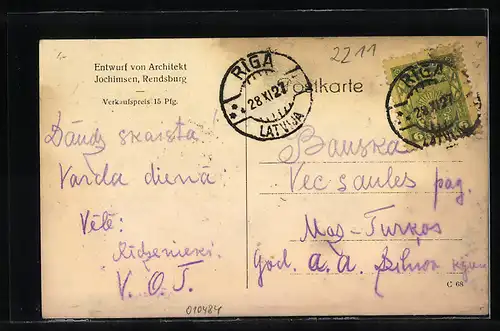 Entwurf von Architekt
Jochimsen, Rendsburg
Verkaufspreis 15 Pfg.
2211
RIGA
28 XI 27
LATVIJA
Postkarte
RIGA
28 XI 27
LATVIJA
Daudz skaista!
Varda diena
Vēlē:
V. O. J.
Bauska
Vecsaules pag.
Mas-Turkos
God. a. a.
C 68
010484